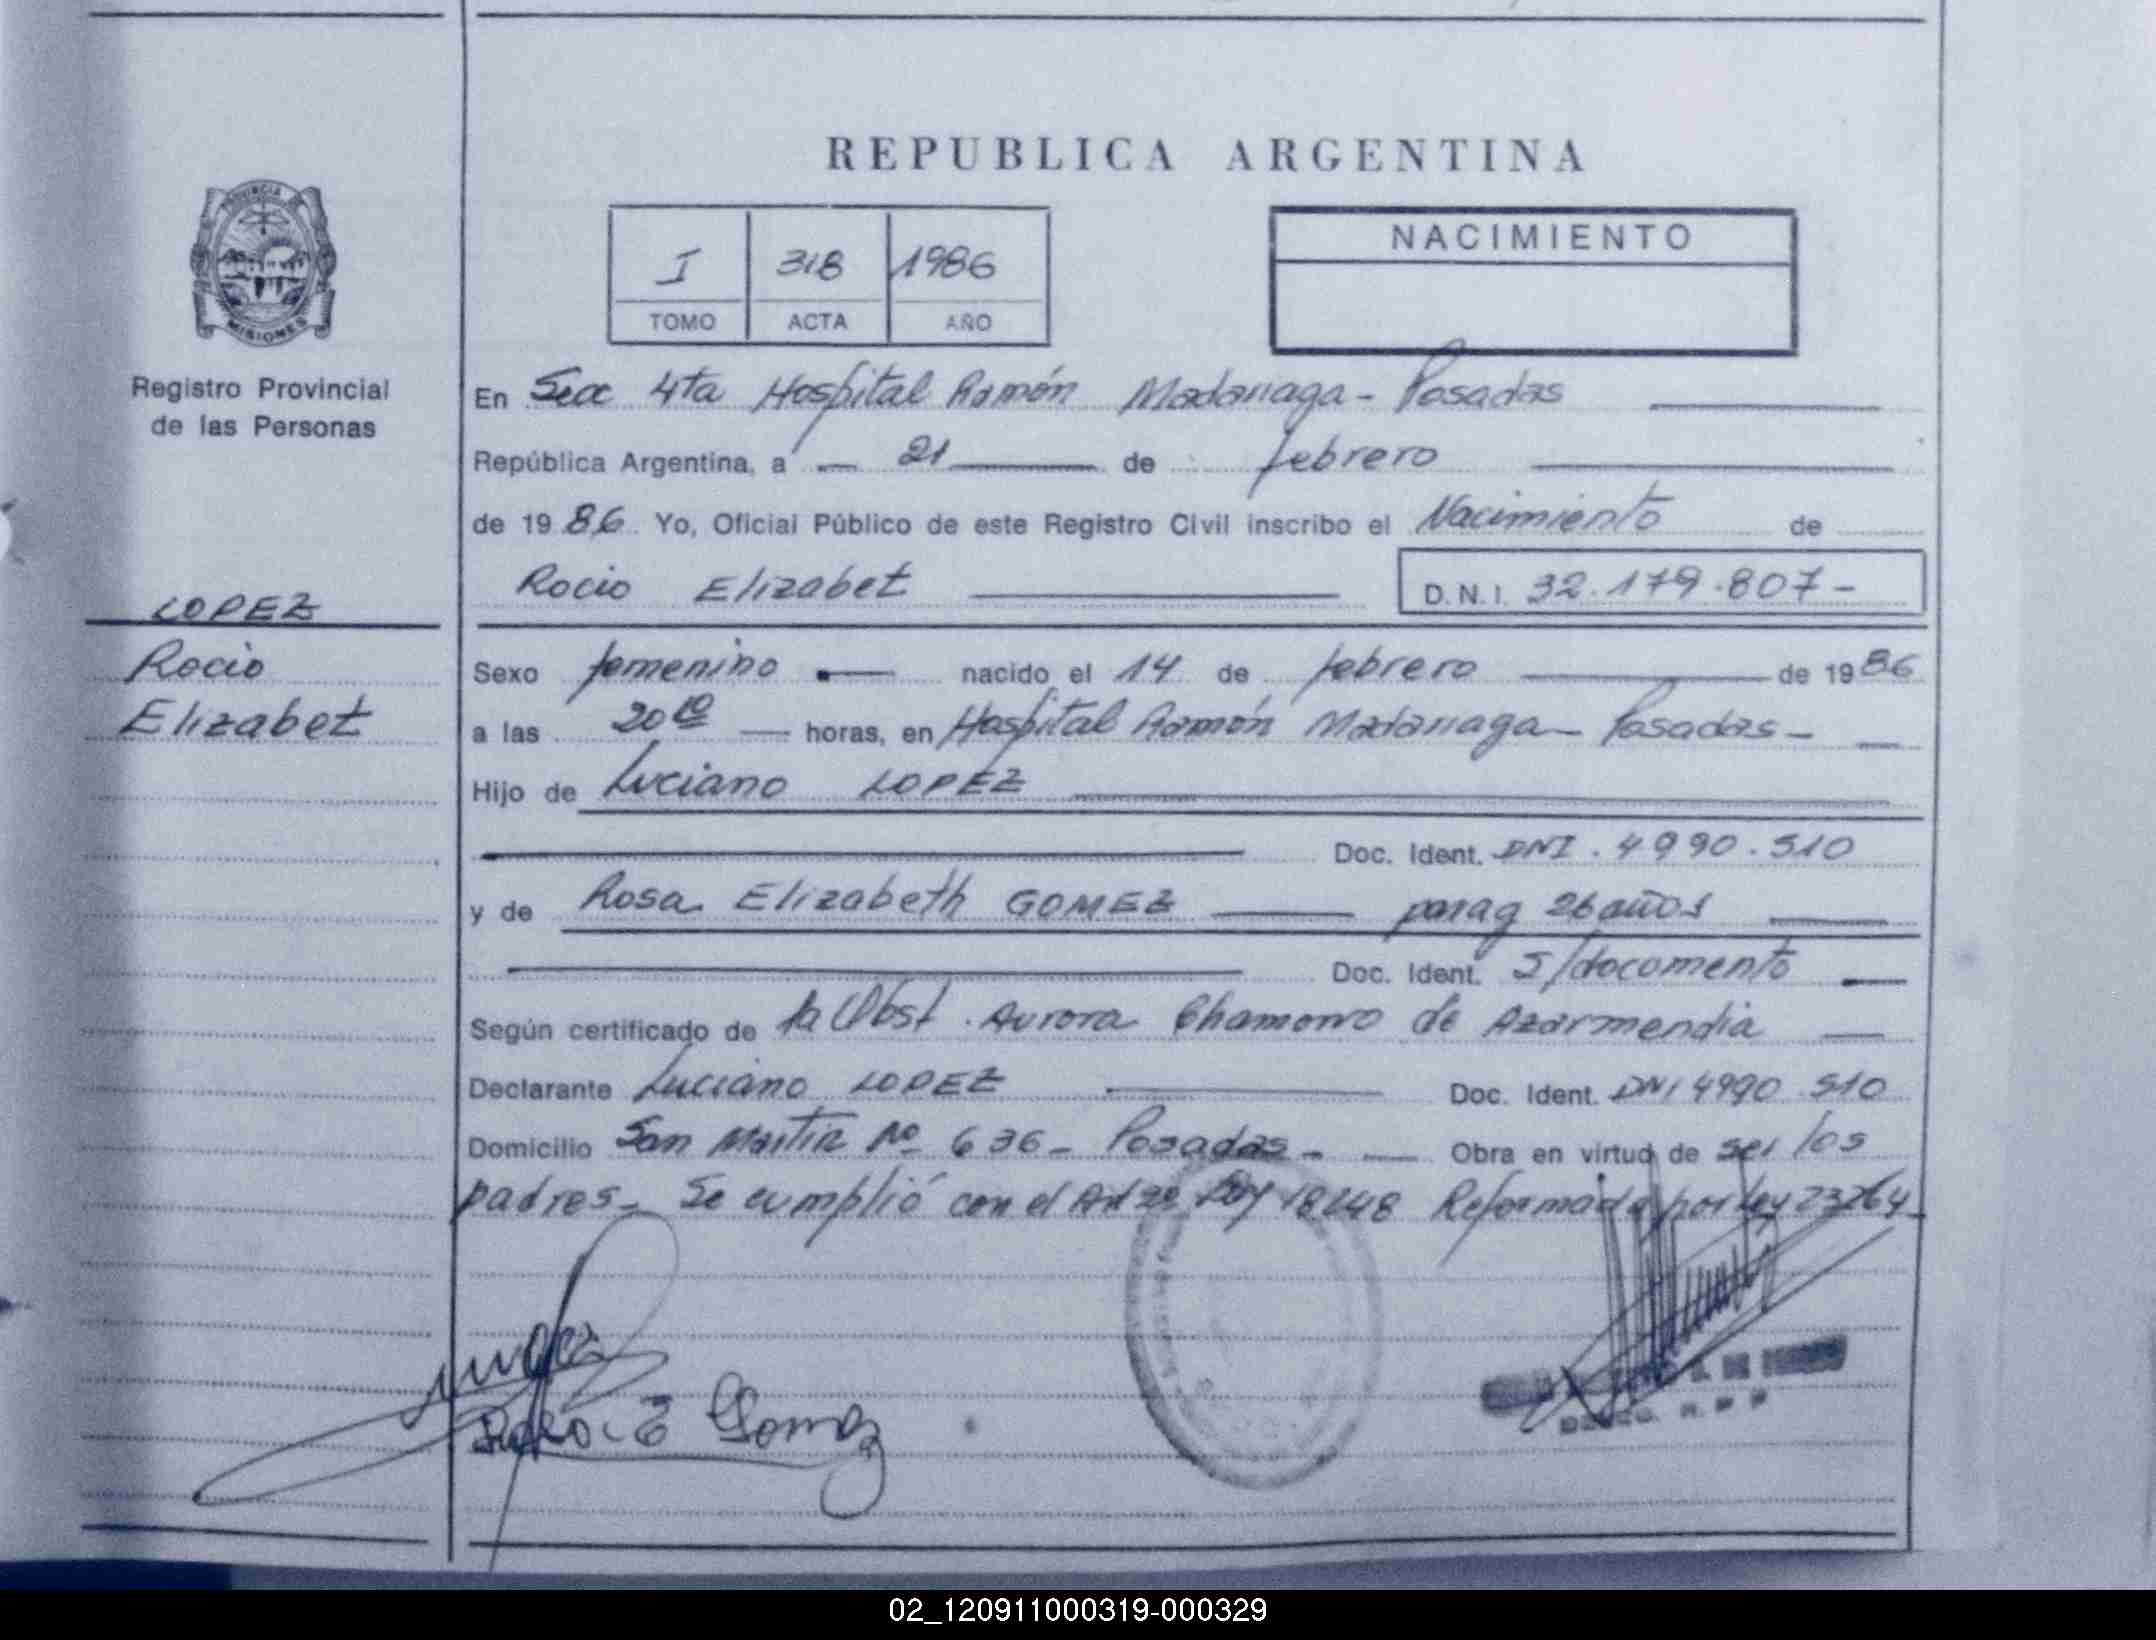 REPUBLICA ARGENTINA
PROVINCIA DE
MISIONES
I 318 1986
TOMO ACTA AÑO
NACIMIENTO
Registro Provincial
de las Personas
LOPEZ
Rocio
Elizabet
En Secc 4ta Hospital Ramón Madariaga - Posadas
República Argentina, a 21 de febrero
de 1986 Yo, Oficial Público de este Registro Civil inscribo el Nacimiento de
Rocio Elizabet D.N.I. 32.179.807-
Sexo femenino nacido el 14 de febrero de 1986
a las 20 10 horas, en Hospital Ramón Madariaga - Posadas -
Hijo de Luciano LOPEZ
Doc. Ident. DNI . 4990.510
y de Rosa Elizabeth GOMEZ parag 26 años
Doc. Ident. S/documento
Según certificado de la Obst. Aurora Chamorro de Azarmendia
Declarante Luciano LOPEZ Doc. Ident. DNI 4990.510
Domicilio San Martin No 636 - Posadas - Obra en virtud de ser los
padres - Se cumplió con el Art 2º Ley 18248 Reformada por Ley 23264
Rosa E Gomez
02_120911000319-000329